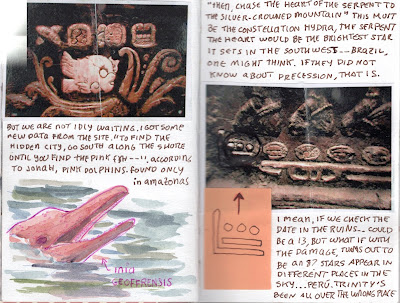 BUT WE ARE NOT IDLY WAITING. I GOT SOME
NEW DATA FROM THE SITE. "TO FIND THE
HIDDEN CITY, GO SOUTH ALONG THE SHORE
UNTIL YOU FIND THE PINK FISH--". ACCORDING
TO JONAH, PINK DOLPHINS. FOUND ONLY
in amazonas
INIA
GEOFFRENSIS
"THEN, CHASE THE HEART OF THE SERPENT TO
THE SILVER-CROWNED MOUNTAIN" THIS MUST
BE THE CONSTELLATION HYDRA, THE SERPENT
THE HEART WOULD BE THE BRIGHTEST STAR
IT SETS IN THE SOUTHWEST... BRAZIL,
ONE MIGHT THINK. IF THEY DID NOT
KNOW ABOUT PRECESSION, THAT IS.
I MEAN, IF WE CHECK THE
DATE IN THE RUINS-- COULD
BE A 13, BUT WHAT IF WITH
THE DAMAGE, TURNS OUT TO
BE AN 8? STARS APPEAR IN
DIFFERENT PLACES IN THE
SKY... PERÚ. TRINITY'S
BEEN ALL OVER THE WRONG PLACE